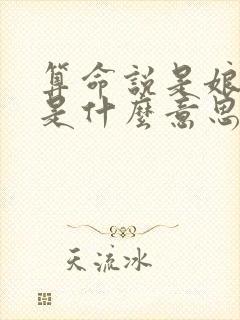 算命說是娘
是什麼意思
天流冰